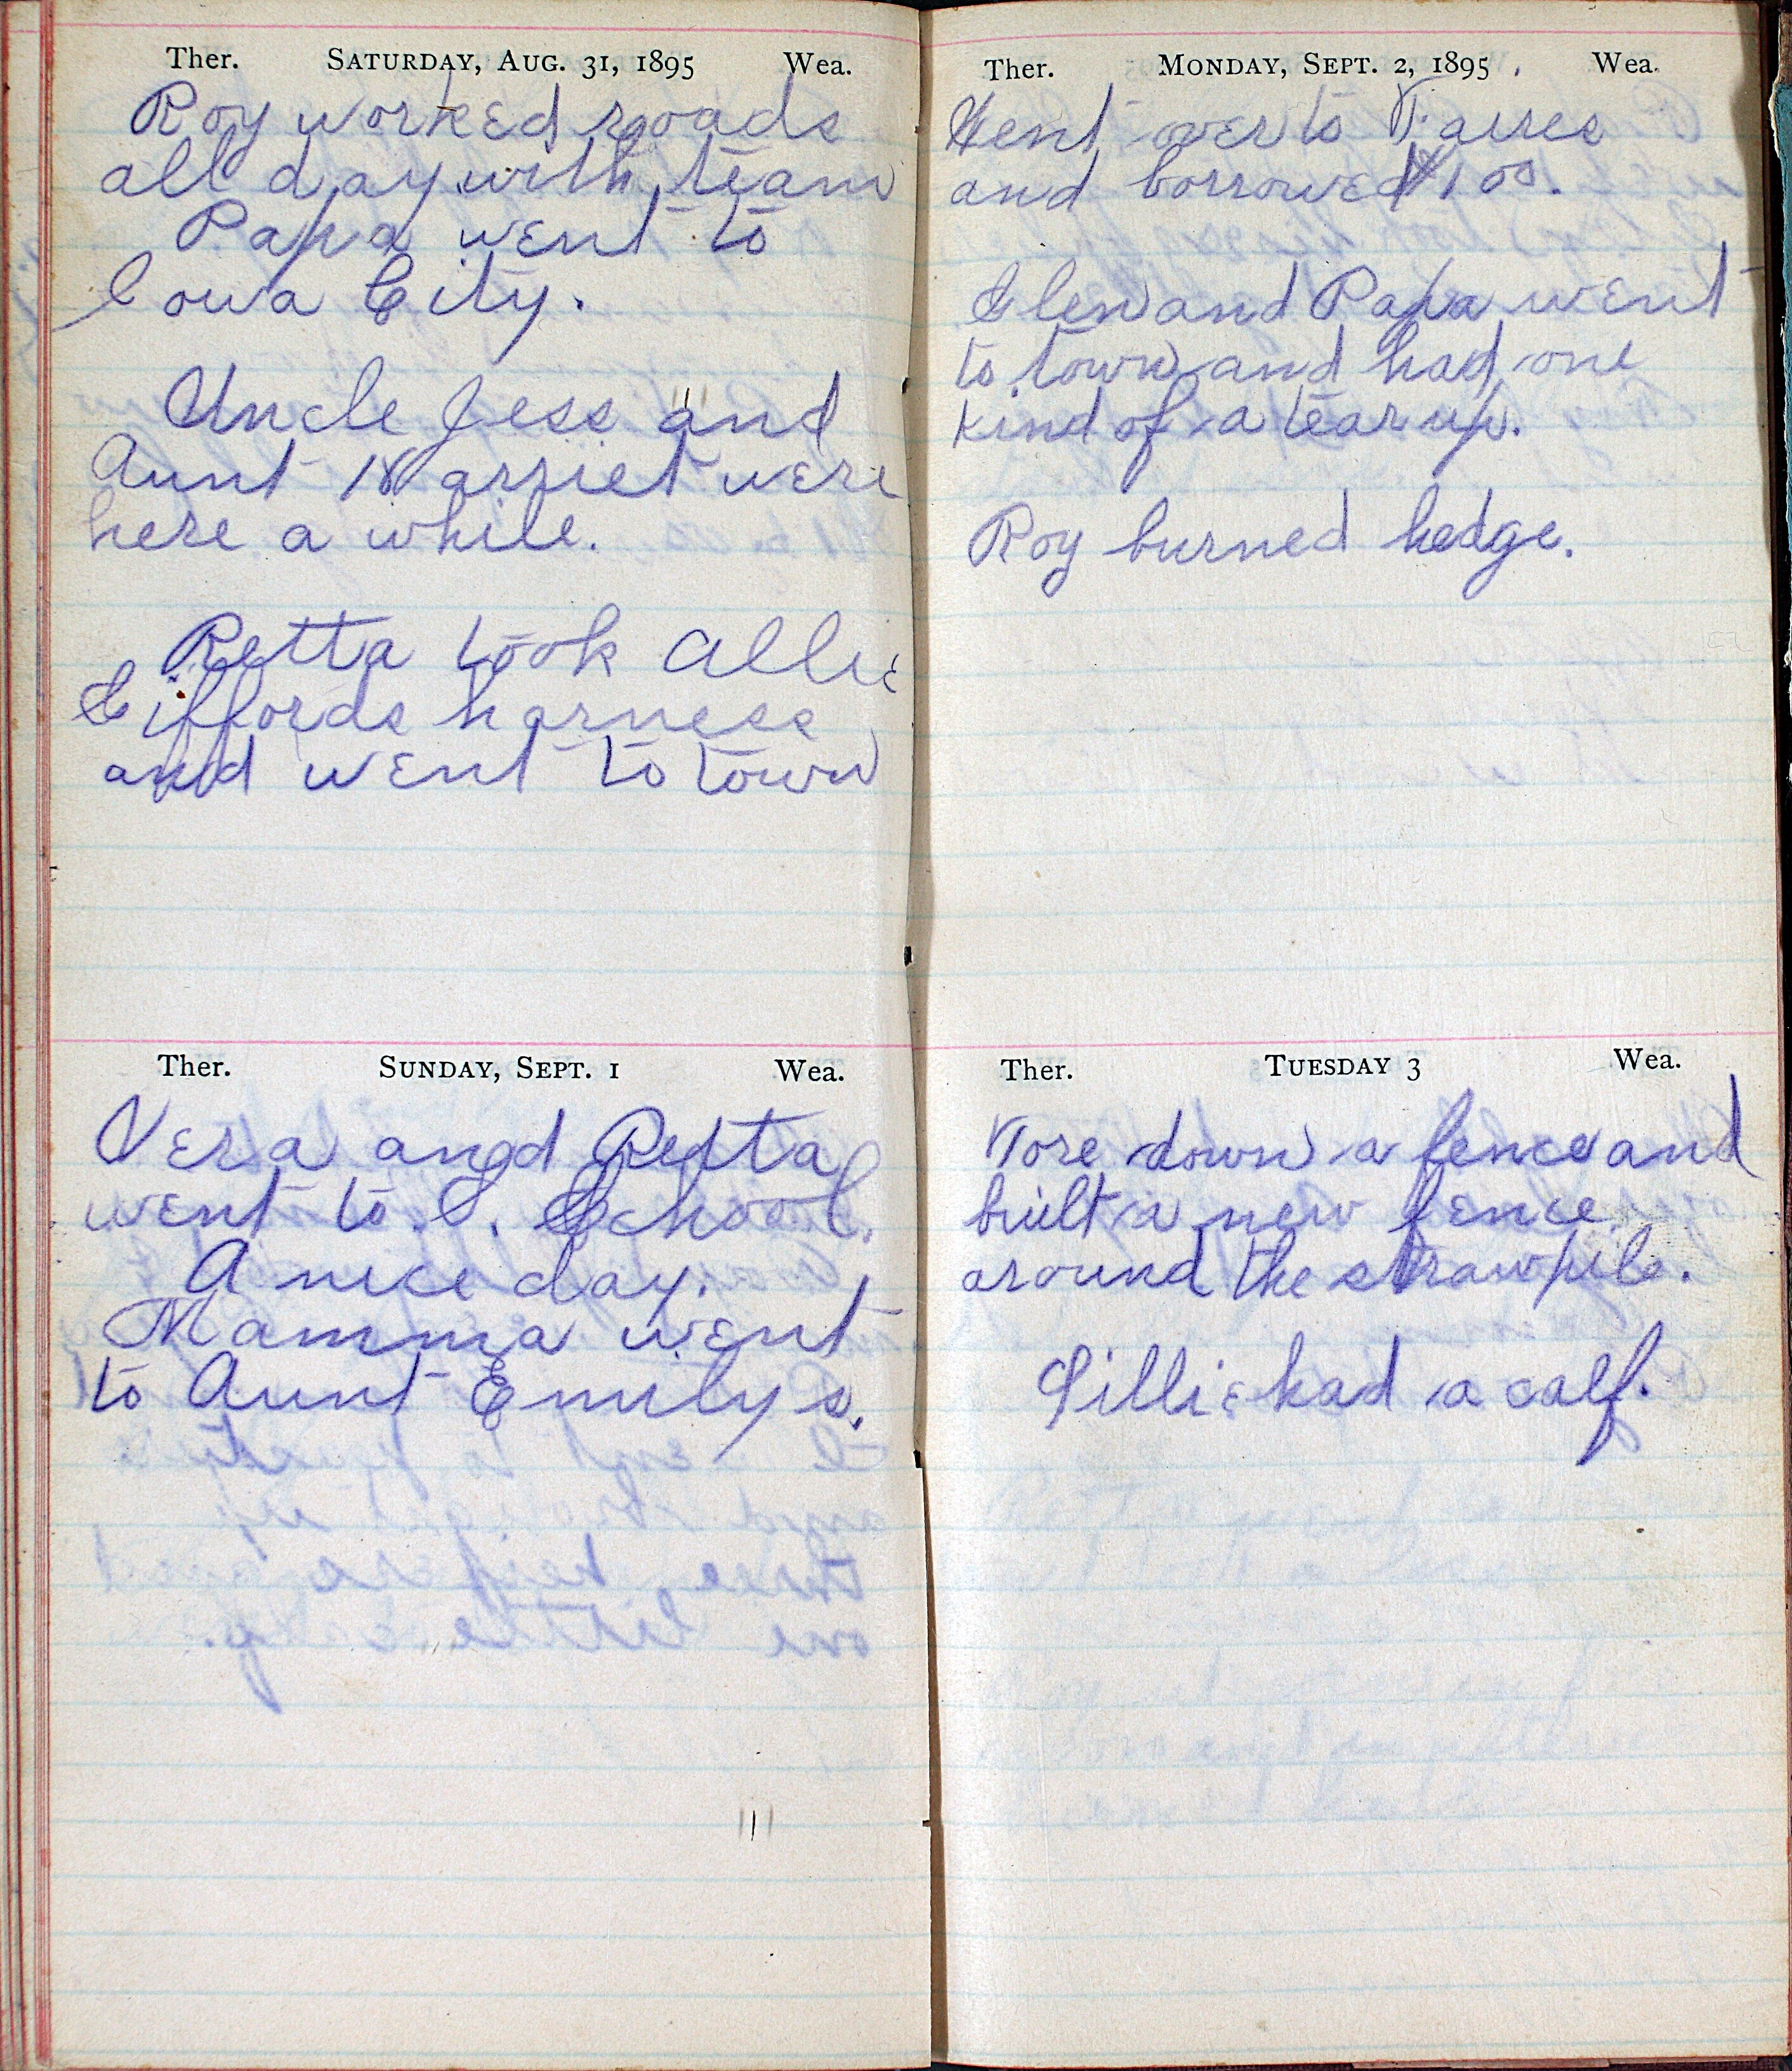 Ther. SATURDAY, AUG. 31, 1895 Wea.
Roy worked roads
all day with team
Papa went to
Iowa City.
Uncle Jess and
Aunt Harriet were
here a while.
Retta took Allie
Giffords harness
and went to town
Ther. SUNDAY, SEPT. 1 Wea.
Vera and Retta
went to S. School.
A nice day.
Mamma went
to Aunt Emilys.
Ther. MONDAY, SEPT. 2, 1895. Wea.
Went over to
and borrowed $100.
Glen and Papa went
to town and had one
kind of a tear up.
Roy burned hedge.
Ther. TUESDAY 3 Wea.
Tore down a fence and
built a new fence
around the strawpile.
Lillie had a calf.